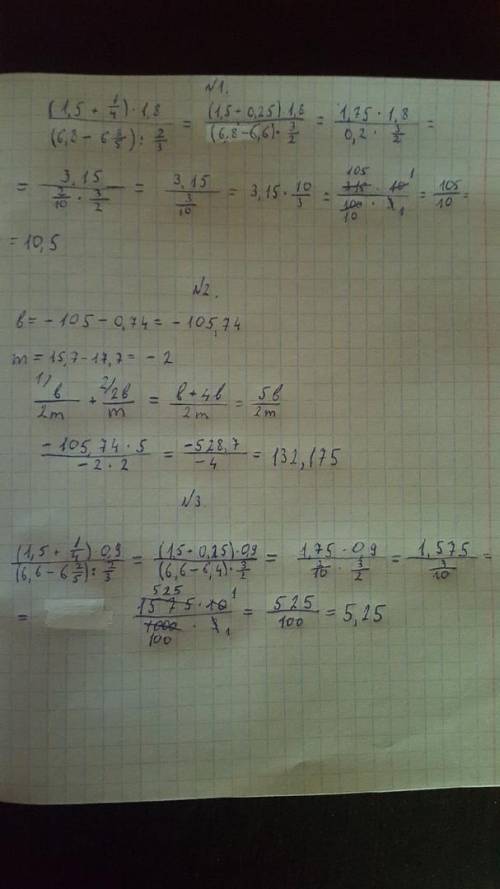 №1.
((1,5 + 1/4) · 1,8) / ((6,8 − 6 3/5) : 2/3) = ((1,5 + 0,25) 1,8) / ((6,8 − 6,6) · 3/2) = (1,75 · 1,8) / (0,2 · 3/2) =
= 3,15 / (2/10 · 3/2) = 3,15 / (3/10) = 3,15 · 10/3 = (315 · 10) / (100 · 3) 105 1 10 1 = 105/10 =
= 10,5
№2.
b = − 105 − 0,74 = − 105,74
m = 15,7 − 17,7 = − 2
1) b/2m + 2) 2b/m = (b + 4b)/2m = 5b/2m
(− 105,74 · 5)/(− 2 · 2) = −528,7/−4 = 132,175
№3
((1,5 + 1/4) 0,9) / ((6,6 − 6 2/5) : 2/3) = ((1,5 + 0,25) · 0,9) / ((6,6 − 6,4) · 3/2) = (1,75 · 0,9) / (2/10 · 3/2) = 1,575 / (3/10) =
= (1575 · 10) / (1000 · 3) 525 1 100 1 = 525/100 = 5,25